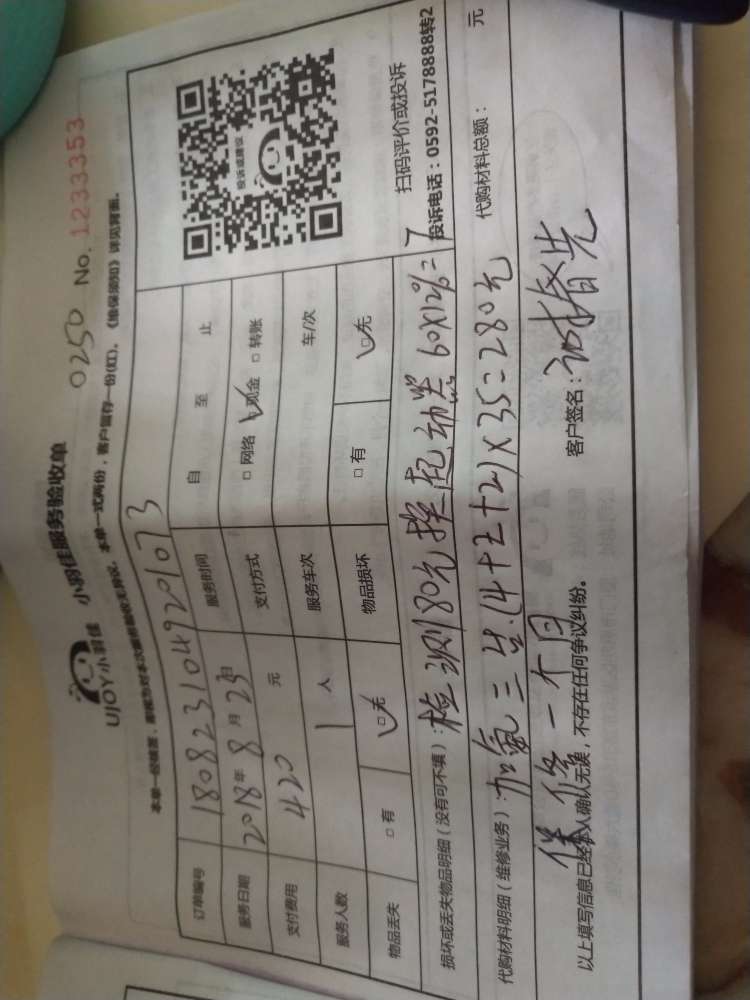 UJOY小羽佳 小羽佳服务验收单
0250 No. 1233353
本单一经填签，即视为对本次服务验收无异议。本单一式两份，客户留存一份(红)。《维保须知》详见背面。
订单编号 1808231049201073
服务日期 2018年8月23日 服务时间 自 至 止
支付费用 420 元 支付方式 □ 网络 ☑ 现金 □ 转账
服务人数 1 人 服务车次 车/次
物品丢失 □ 有 ☑ 无 物品损坏 □ 有 ☑ 无
投诉或建议
扫码评价或投诉
投诉电话：0592-5178888转2
损坏或丢失物品明细（没有可不填）：检测80元 换起动器 60X12%=17
代购材料明细（维修业务）：加氟三台.(4+2+2)X35=280元 代购材料总额： 元
保修一个月
以上填写信息已经本人确认无误，不存在任何争议纠纷。 客户签名：